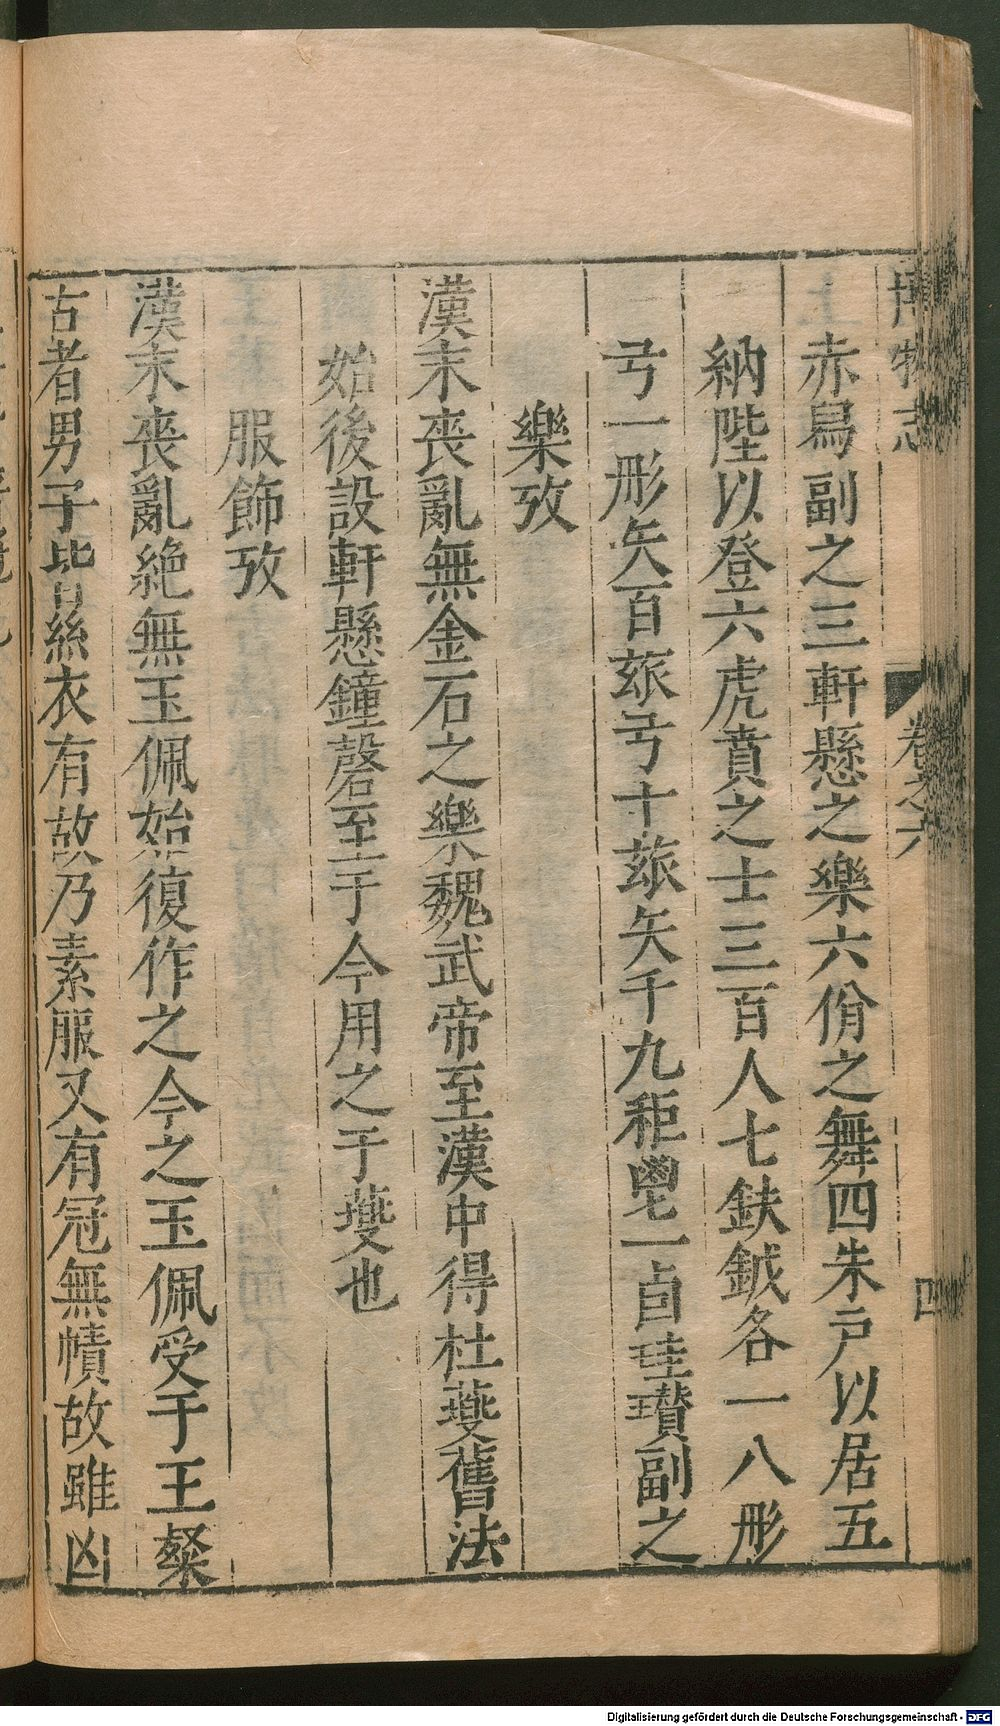 博物志 卷之六 四
赤舄副之三軒懸之樂六佾之舞四朱戶以居五
納陛以登六虎賁之士三百人七鈇鉞各一八彤
弓一彤矢百玈弓十玈矢千九秬鬯一卣珪瓚副之
樂攷
漢末喪亂無金石之樂魏武帝至漢中得杜夔舊法
始後設軒懸鐘磬至于今用之于夔也
服飾攷
漢末喪亂絶無玉佩始復作之今之玉佩受于王粲
古者男子皆絲衣有故乃素服又有冠無幘故雖凶
Digitalisierung gefördert durch die Deutsche Forschungsgemeinschaft - DFG